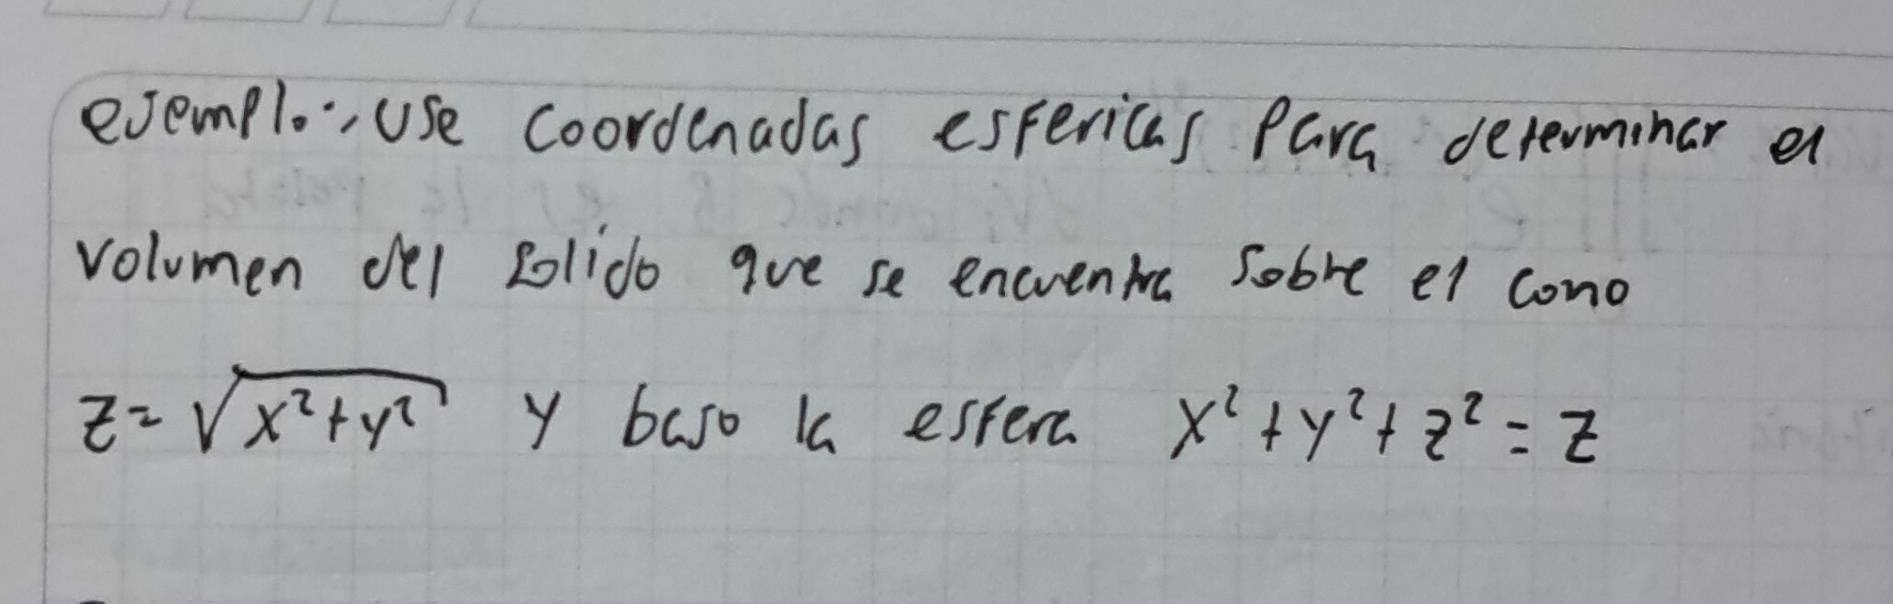 eJemplo:, Use coordenadas esfericas Para determinar el
volumen del solido que se encuentra sobre el cono
z = √x²+y² y bajo la esfera x²+y²+z² = z